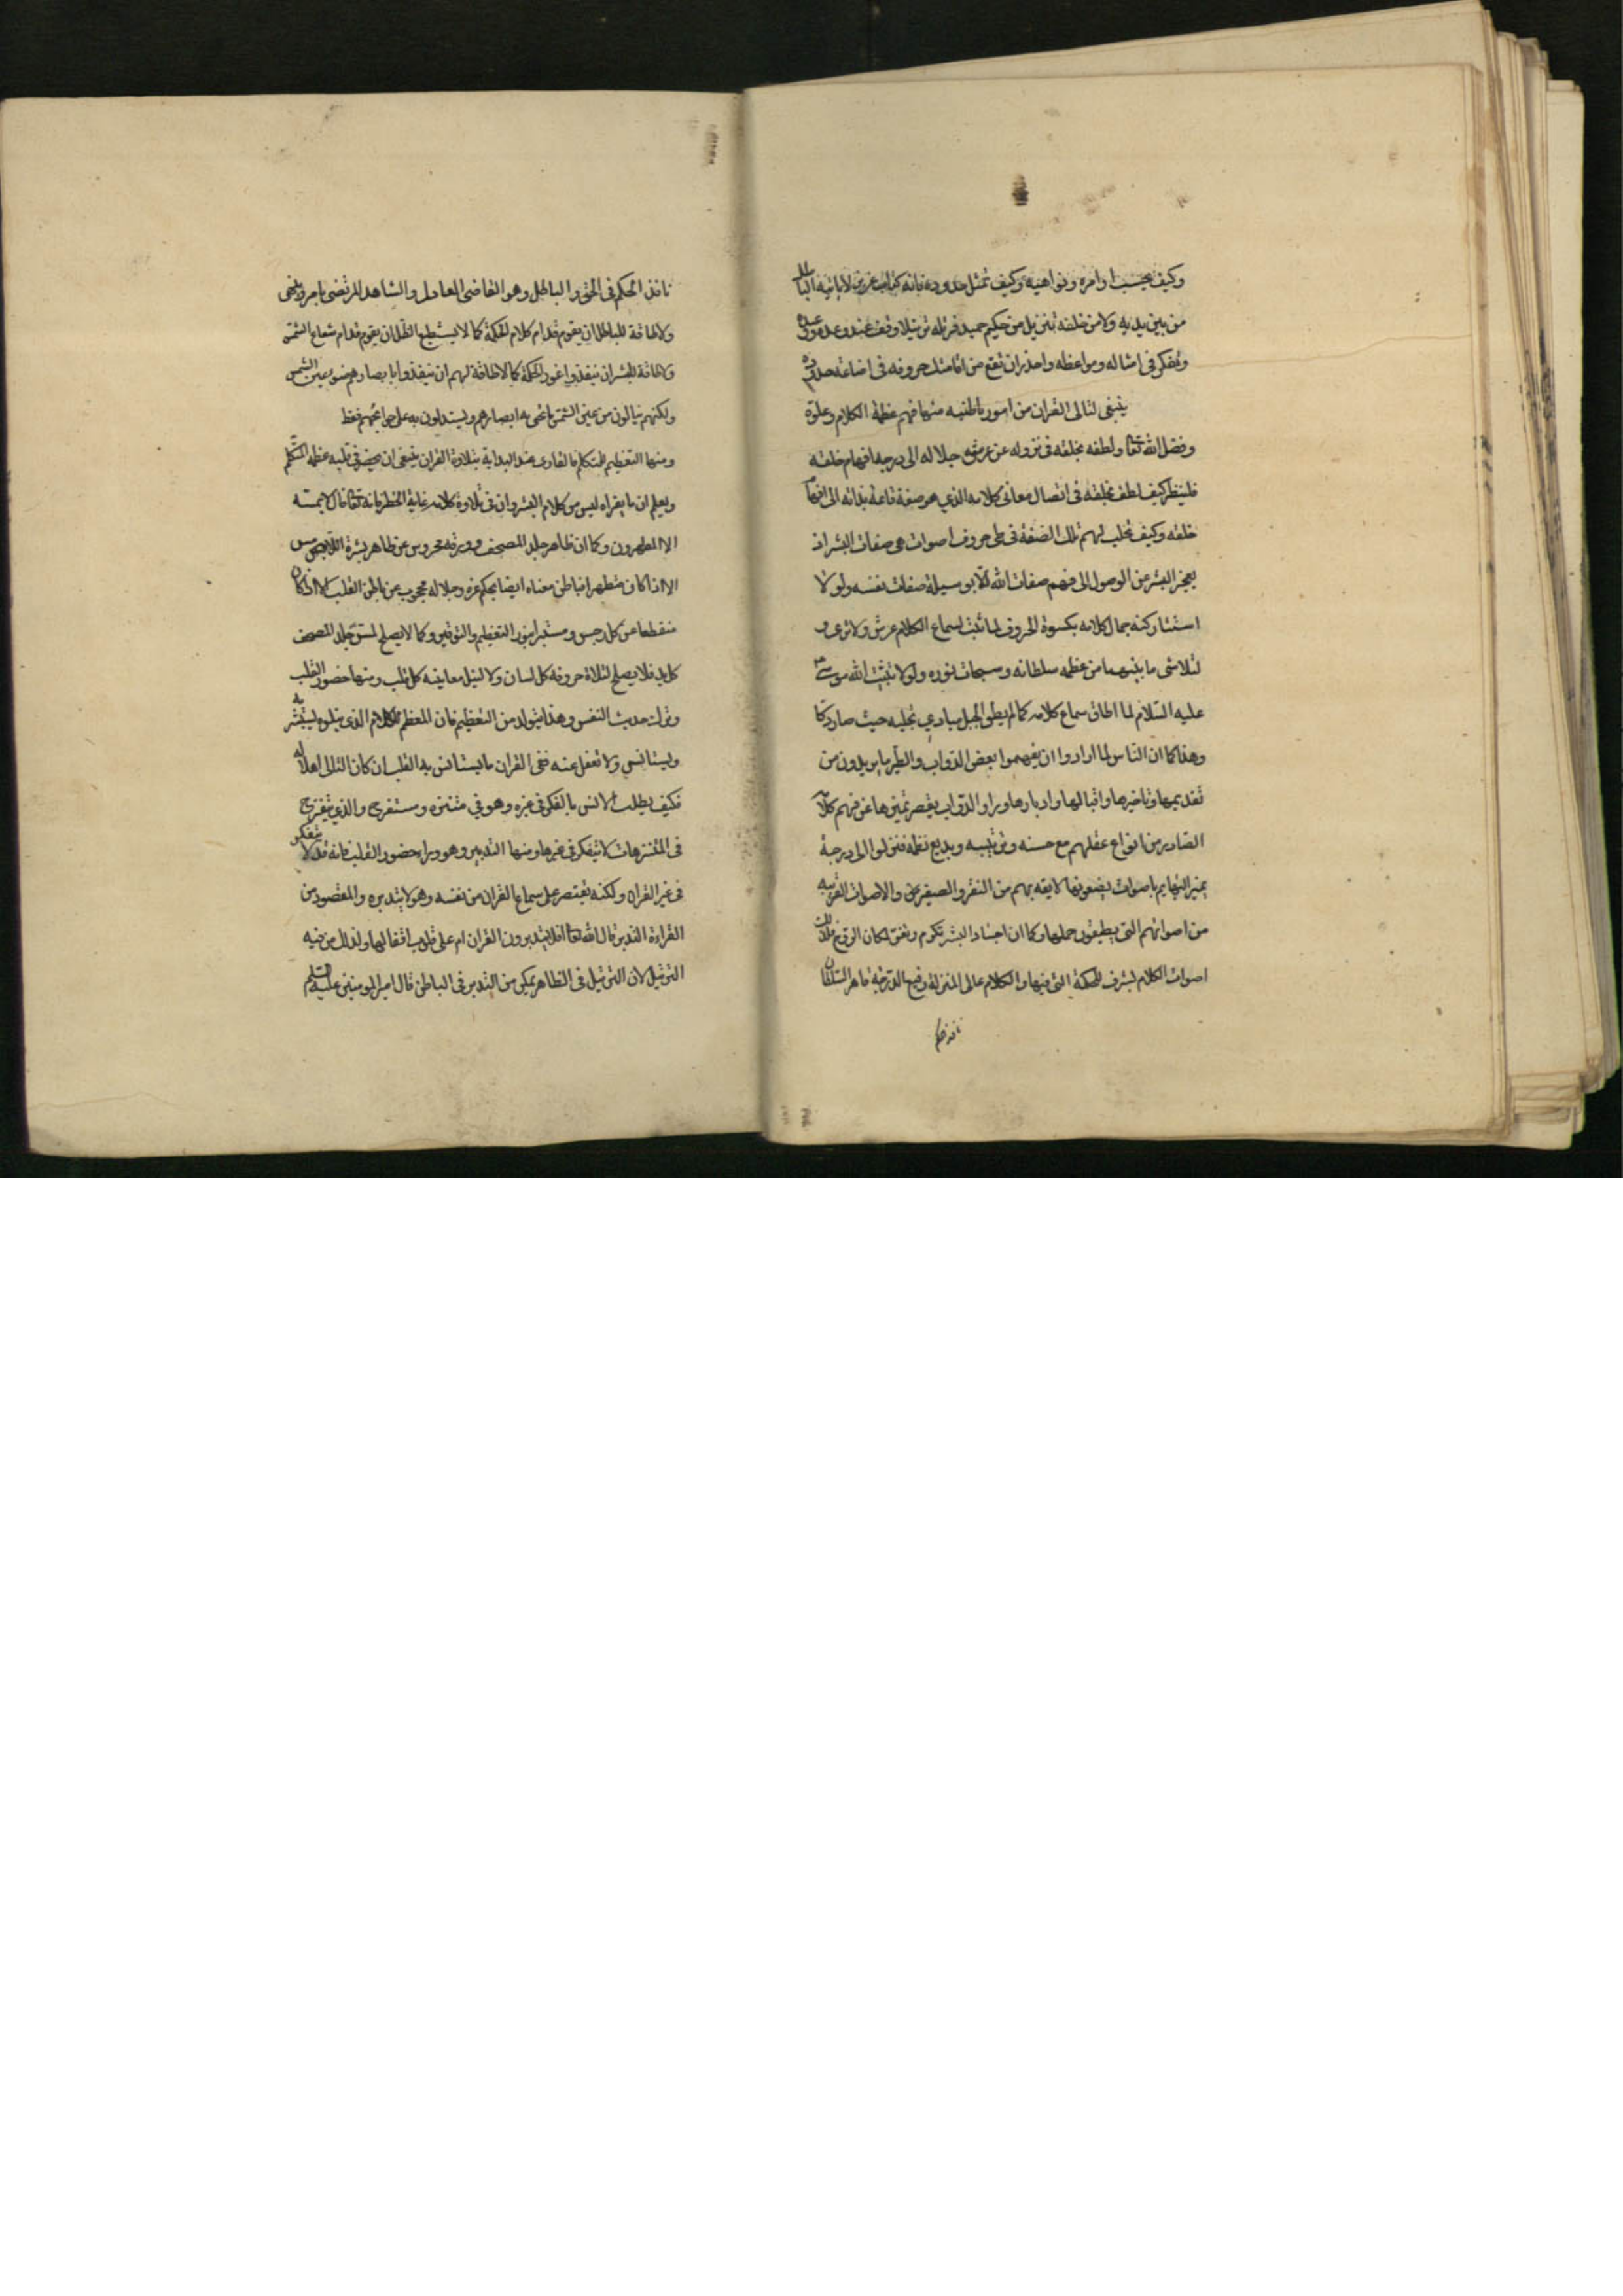 وكيف تجتنب اوامره ونواهيه وكيف تمثل حدوده فانه كتاب عزيز لا ياتيه الباطل
من بين يديه ولا من خلفه تنزيل من حكيم حميد فرتله ترتيلا وقف عند وعده ووعيده
وتفكر في امثاله ومواعظه واحذر ان تقع من اقامتك حروفه في اضاعة حدوده
ينبغي لتالي القران من امور باطنيه منها فهم عظمة الكلام وعلوه
وفضل الله تعا ولطفه بخلقه في نزوله عن عرش جلاله الى درجة افهام خلقه
فلينظر كيف لطف بخلقه في اتصال معاني كلامه الذي هو صفة قائمة بذاته الى افهام
خلقه وكيف تجلت لهم تلك الصفة في طي حروف اصوات هي صفات البشر اذ
يعجز البشر عن الوصول الى فهم صفات الله الا بوسيلة صفات نفسه ولولا
استتار كنه جمال كلامه بكسوة الحروف لما ثبت لسماع الكلام عرش ولا ثرى و
لتلاشى ما بينهما من عظمه سلطانه وسبحات نوره ولولا تثبيت الله موسى
عليه السلام لما اطاق سماع كلامه كما لم يطق الجبل مبادي تجليه حيث صار دكا
وهذا كما ان الناس لما ارادوا ان يفهموا بعض الدواب والطير ما يريدون من
تقديمها وتاخيرها واقبالها وادبارها وراوا الدواب يقصر تميزها عن فهم كلامهم
الصادر من انواع عقلهم مع حسنه وترتيبه وبديع نظمه فنزلوا الى درجة
تميز البهايم باصوات يضعونها لايقه بهم من النقر والصفير والاصوات القريبه
من اصواتهم التي يطيقون حملها وكما ان اجساد البشر تكرم وتعز لمكان الروح فكذلك
اصوات الكلام لشرف الحكمة التي فيها والكلام عالي المنزلة رفيع الدرجة قاهر السلطان
نافذ حكم
نافذ الحكم في الحق والباطل وهو القاضي العادل والشاهد المرتضى يامر وينهى
ولا طاقة للباطل ان يقوم قدام كلام الحكمة كما لا يستطيع الظل ان يقوم قدام شعاع الشمس
ولا طاقة للبشر ان ينفذوا غور الحكمة كما لا طاقة لهم ان ينفذوا بابصارهم ضوء عين الشمس
ولكنهم ينالون من عين الشمس ما تحى به ابصارهم ويستدلون به على حوائجهم فقط
ومنها التعظيم للمتكلم فالقارى عند البداية بتلاوة القران ينبغي ان يحضر في قلبه عظمه المتكلم
ويعلم ان ما يقراه ليس من كلام البشر وان في تلاوة كلامه غاية الخطر فانه تعا قال لا يمسه
الا المطهرون وكما ان ظاهر جلد المصحف وورقه محروس عن ظاهر بشرة اللامس
الا اذا كان متطهرا فباطن معناه ايضا بحكم عزه وجلاله محجوب عن باطن القلب الا اذا كان
منقطعا عن كل رجس ومستنيرا بنور التعظيم والتوقير وكما لا يصلح لمس جلد المصحف
كل يد فلا يصلح لتلاوة حروفه كل لسان ولا لنيل معانيه كل قلب ومنها حضور القلب
وترك حديث النفس وهذا يتولد من التعظيم فان المعظم للكلام الذي يتلوه يستبشر به
ويستانس ولا تغفل عنه ففي القران ما يستانس به القلب ان كان التالي اهلا له
فكيف يطلب الانس بالفكر في غيره وهو في متنزه ومستفرج والذي يتفرج
في المتنزهات لا يتفكر في غيرها ومنها التدبر وهو وراء حضور القلب فانه قد لا يتفكر
في غير القران ولكنه يقتصر على سماع القران من نفسه وهو لا يتدبره والمقصود من
القراءة التدبر قال الله تعا افلا يتدبرون القران ام على قلوب اقفالها ولذلك سن فيه
الترتيل لان الترتيل في الظاهر يمكن من التدبر في الباطن قال امير المومنين عليه السلم